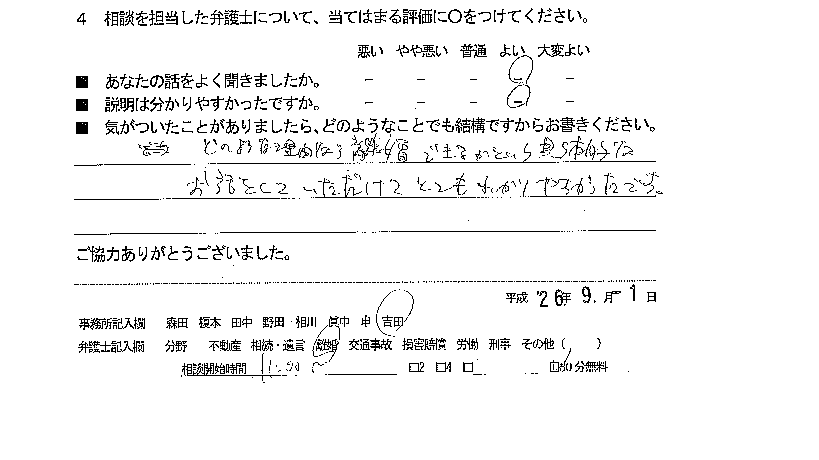 4 相談を担当した弁護士について、当てはまる評価に○をつけてください。
悪い やや悪い 普通 よい 大変よい
■ あなたの話をよく聞きましたか。 － － － － －
■ 説明は分かりやすかったですか。 － － － － －
■ 気がついたことがありましたら、どのようなことでも結構ですからお書きください。
どのような理由なら離婚できるかという具体的な
お話をしていただけてとてもわかりやすかったです。
ご協力ありがとうございました。
平成 '26年 9.月 -1 日
事務所記入欄 森田 榎本 田中 野田・相川 眞中 申 吉田
弁護士記入欄 分野 不動産 相続・遺言 離婚 交通事故 損害賠償 労働 刑事 その他（ ）
相談開始時間 11:00 ～ □2 □4 □ □30分無料